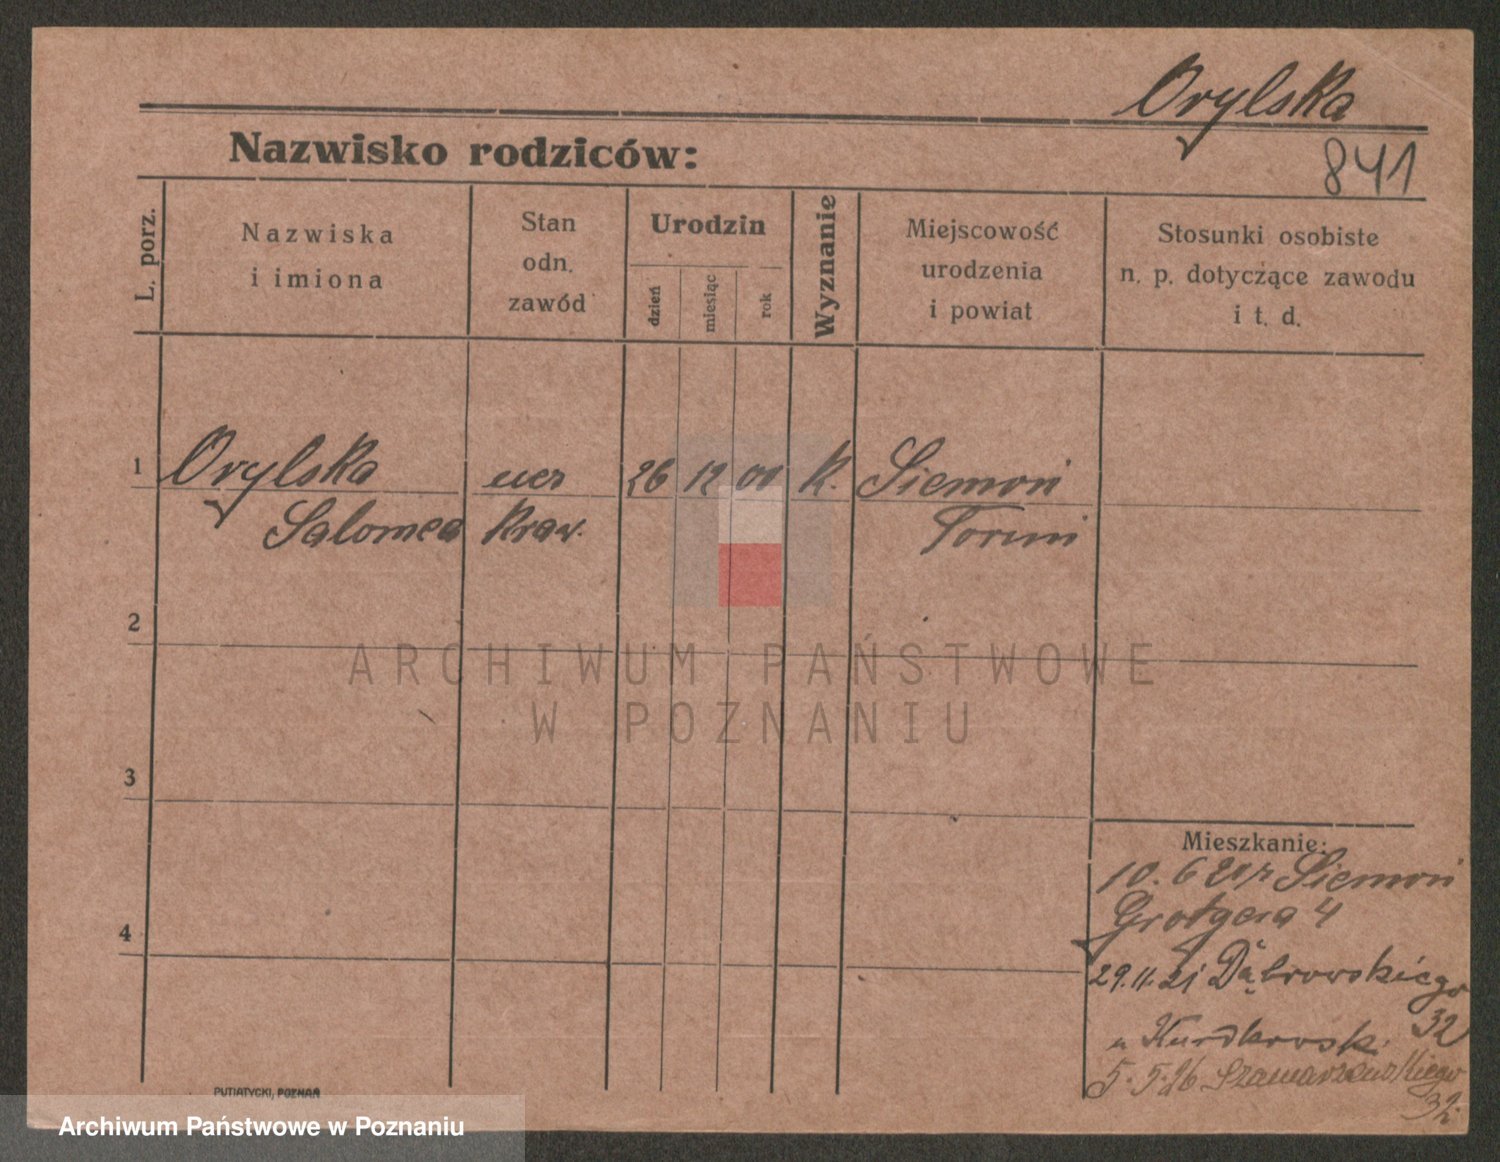 Orylska
841
Nazwisko rodziców:
L. porz.
Nazwiska
i imiona
Stan
odn.
zawód
Urodzin
dzień
miesiąc
rok
Wyznanie
Miejscowość
urodzenia
i powiat
Stosunki osobiste
n. p. dotyczące zawodu
i t. d.
1
Orylska
Salomea
ucz
Kraw.
26 12 00
k.
Siemoń
Toruń
2
3
4
ARCHIWUM PAŃSTWOWE
W POZNANIU
Mieszkanie:
10. 6 Siemoń
Grotgera 4
29.11.21 Dąbrowskiego
32
u
5.5.26 Szamarzewskiego
32
PUTIATYCKI, POZNAŃ
Archiwum Państwowe w Poznaniu